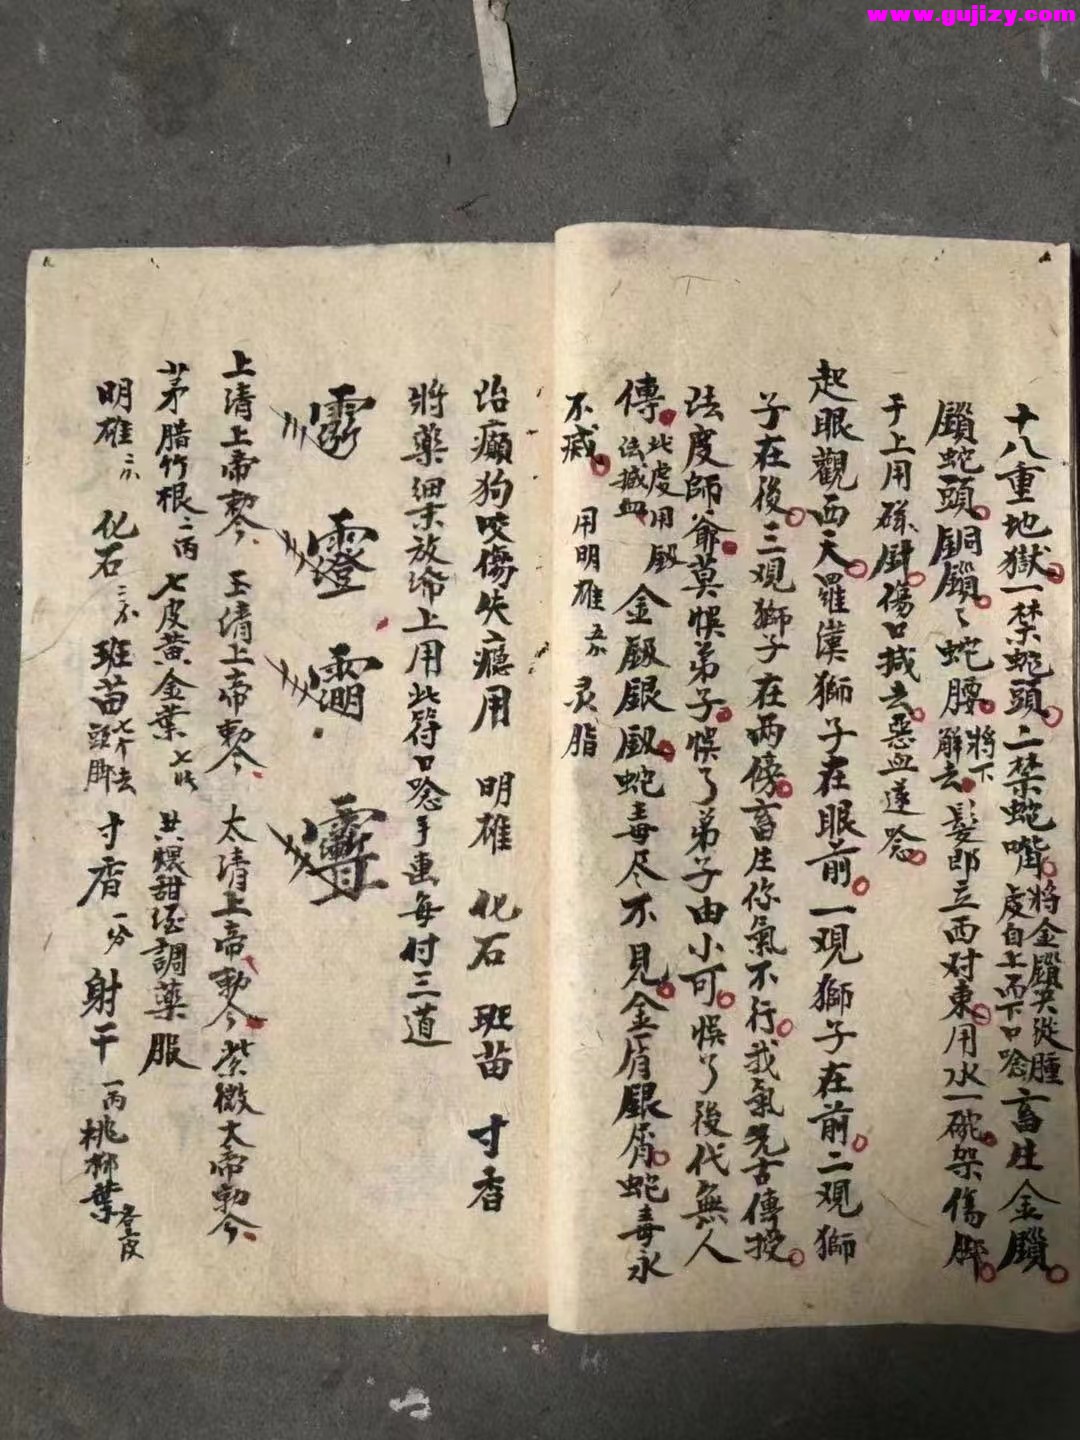 www.gujizy.com
十八重地獄一禁蛇頭二禁蛇嘴將金鎖匙從腫處自上而下口唸畜生金鎖
鎖蛇頭銅鎖〻蛇腰將下解去髮郎立西对東用水一碗架傷脚
于上用磁尉傷口搣去惡血遂唸
起眼觀西天羅漢獅子在眼前一观獅子在前二观獅
子在後三观獅子在两傍畜生你氣不行我氣先古傳授
法度師爺莫悞弟子悞了弟子由小可悞了後代無人
傳此處用殿法搣血金殿銀殿蛇毒尽不見金眉銀屑蛇毒永
不藏 用明雄五分 灵脂
治癲狗咬傷失癮用 明雄 化石 班苗 寸香
將藥細末放符上用此符口唸手画每付三道
上清上帝勅令 玉清上帝勅令 太清上帝勅令 紫微大帝勅令
茅腊竹根二丙 七皮黄金葉七皮 共煨甜酒調藥服
明雄二分 化石二分 班苗七个去頭脚 寸香一分 射干一丙 桃柳葉各三皮